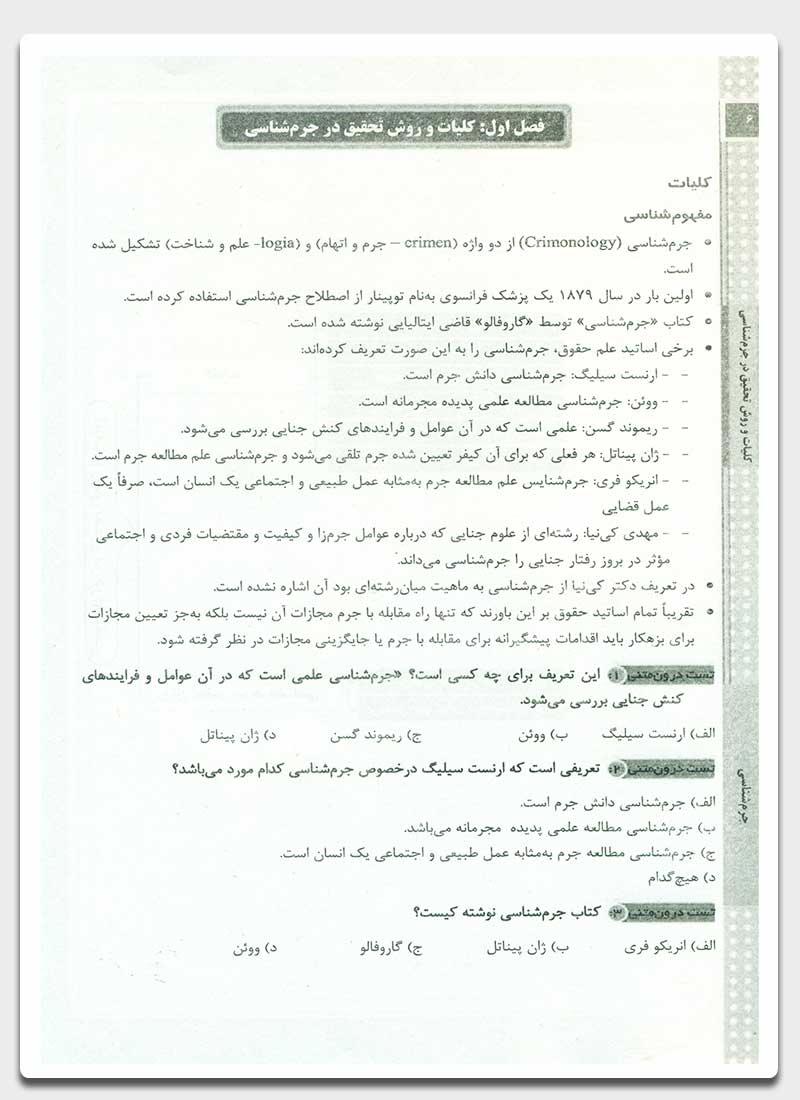 ۶
فصل اول: کلیات و روش تحقیق در جرم‌شناسی
کلیات
مفهوم‌شناسی
• جرم‌شناسی (Crimonology) از دو واژه (crimen – جرم و اتهام) و (logia- علم و شناخت) تشکیل شده
است.
• اولین بار در سال ۱۸۷۹ یک پزشک فرانسوی به‌نام توپینار از اصطلاح جرم‌شناسی استفاده کرده است.
• کتاب «جرم‌شناسی» توسط «گاروفالو» قاضی ایتالیایی نوشته شده است.
• برخی اساتید علم حقوق، جرم‌شناسی را به این صورت تعریف کرده‌اند:
- - ارنست سیلیگ: جرم‌شناسی دانش جرم است.
- - ووئن: جرم‌شناسی مطالعه علمی پدیده مجرمانه است.
- - ریموند گسن: علمی است که در آن عوامل و فرایندهای کنش جنایی بررسی می‌شود.
- - ژان پیناتل: هر فعلی که برای آن کیفر تعیین شده جرم تلقی می‌شود و جرم‌شناسی علم مطالعه جرم است.
- - انریکو فری: جرم‌شنایس علم مطالعه جرم به‌مثابه عمل طبیعی و اجتماعی یک انسان است، صرفاً یک
عمل قضایی
- - مهدی کی‌نیا: رشته‌ای از علوم جنایی که درباره عوامل جرم‌زا و کیفیت و مقتضیات فردی و اجتماعی
مؤثر در بروز رفتار جنایی را جرم‌شناسی می‌داند.
• در تعریف دکتر کی‌نیا از جرم‌شناسی به ماهیت میان‌رشته‌ای بود آن اشاره نشده است.
• تقریباً تمام اساتید حقوق بر این باورند که تنها راه مقابله با جرم مجازات آن نیست بلکه به‌جز تعیین مجازات
برای بزهکار باید اقدامات پیشگیرانه برای مقابله با جرم یا جایگزینی مجازات در نظر گرفته شود.
تست درون‌متنی ۱: این تعریف برای چه کسی است؟ «جرم‌شناسی علمی است که در آن عوامل و فرایندهای
کنش جنایی بررسی می‌شود.
الف) ارنست سیلیگ ب) ووئن ج) ریموند گسن د) ژان پیناتل
تست درون‌متنی ۲: تعریفی است که ارنست سیلیگ درخصوص جرم‌شناسی کدام مورد می‌باشد؟
الف) جرم‌شناسی دانش جرم است.
ب) جرم‌شناسی مطالعه علمی پدیده مجرمانه می‌باشد.
ج) جرم‌شناسی مطالعه جرم به‌مثابه عمل طبیعی و اجتماعی یک انسان است.
د) هیچ‌گدام
تست درون‌متنی ۳: کتاب جرم‌شناسی نوشته کیست؟
الف) انریکو فری ب) ژان پیناتل ج) گاروفالو د) ووئن
کلیات و روش تحقیق در جرم‌شناسی
جرم‌شناسی